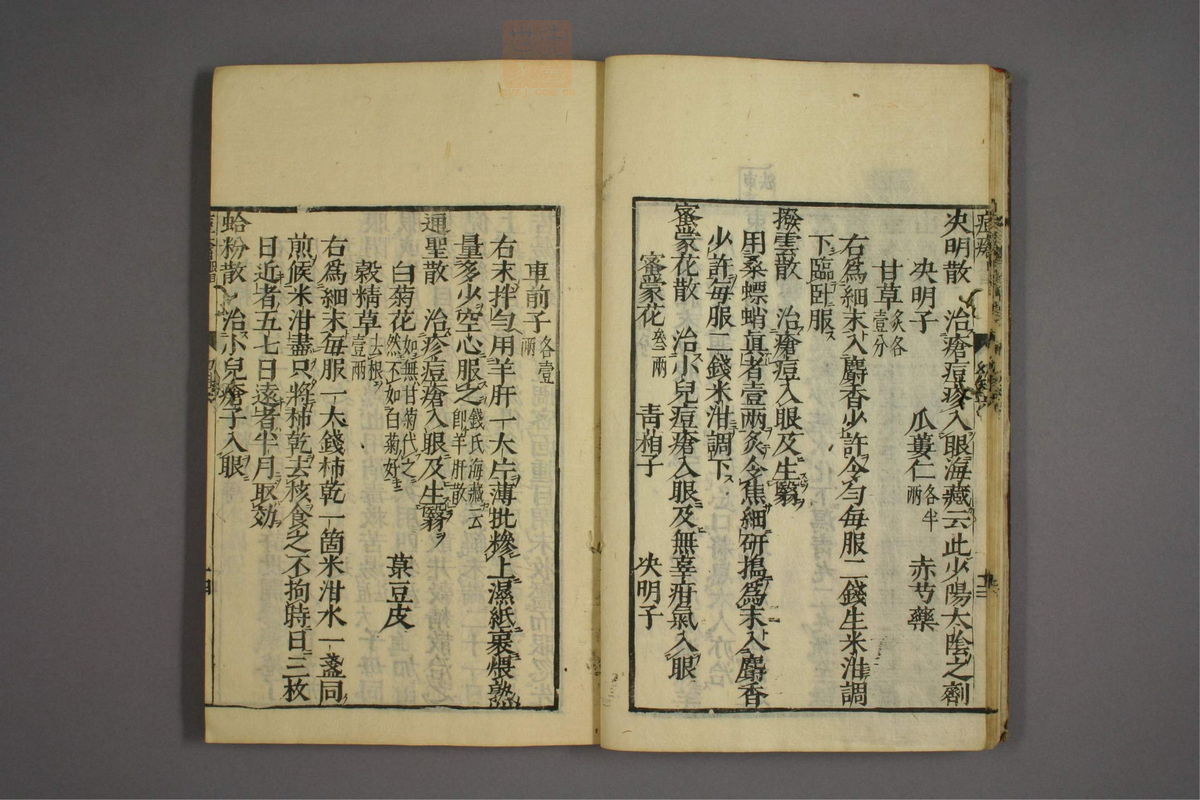 决明散 治瘡痘疹入眼海藏云此少陽太陰之劑
决明子 瓜蔞仁各半兩 赤芍藥
甘草炙各壹分
右爲細末入麝香少許令勻每服二錢生米泔調
下臨臥服
撥雲散 治瘡痘入眼及生翳
用桑螵蛸眞者壹兩炙令焦細研搗爲末入麝香
少許每服二錢米泔調下
蜜蒙花散 治小兒痘瘡入眼及無辜疳氣入眼
蜜蒙花叁兩 青葙子 决明子
車前子各壹兩
右末拌勻用羊肝一大片薄批糝上濕紙裹煨熟
量多少空心服之錢氏海藏云即羊肝散
通聖散 治疹痘瘡入眼及生翳
白菊花如無甘菊代之然不如白菊好 菉豆皮
穀精草去根壹兩
右爲細末每服一大錢柿乾一箇米泔水一盞同
煎候米泔盡只將柿乾去核食之不拘時日三枚
日近者五七日遠者半月取効
蛤粉散 治小兒瘡子入眼